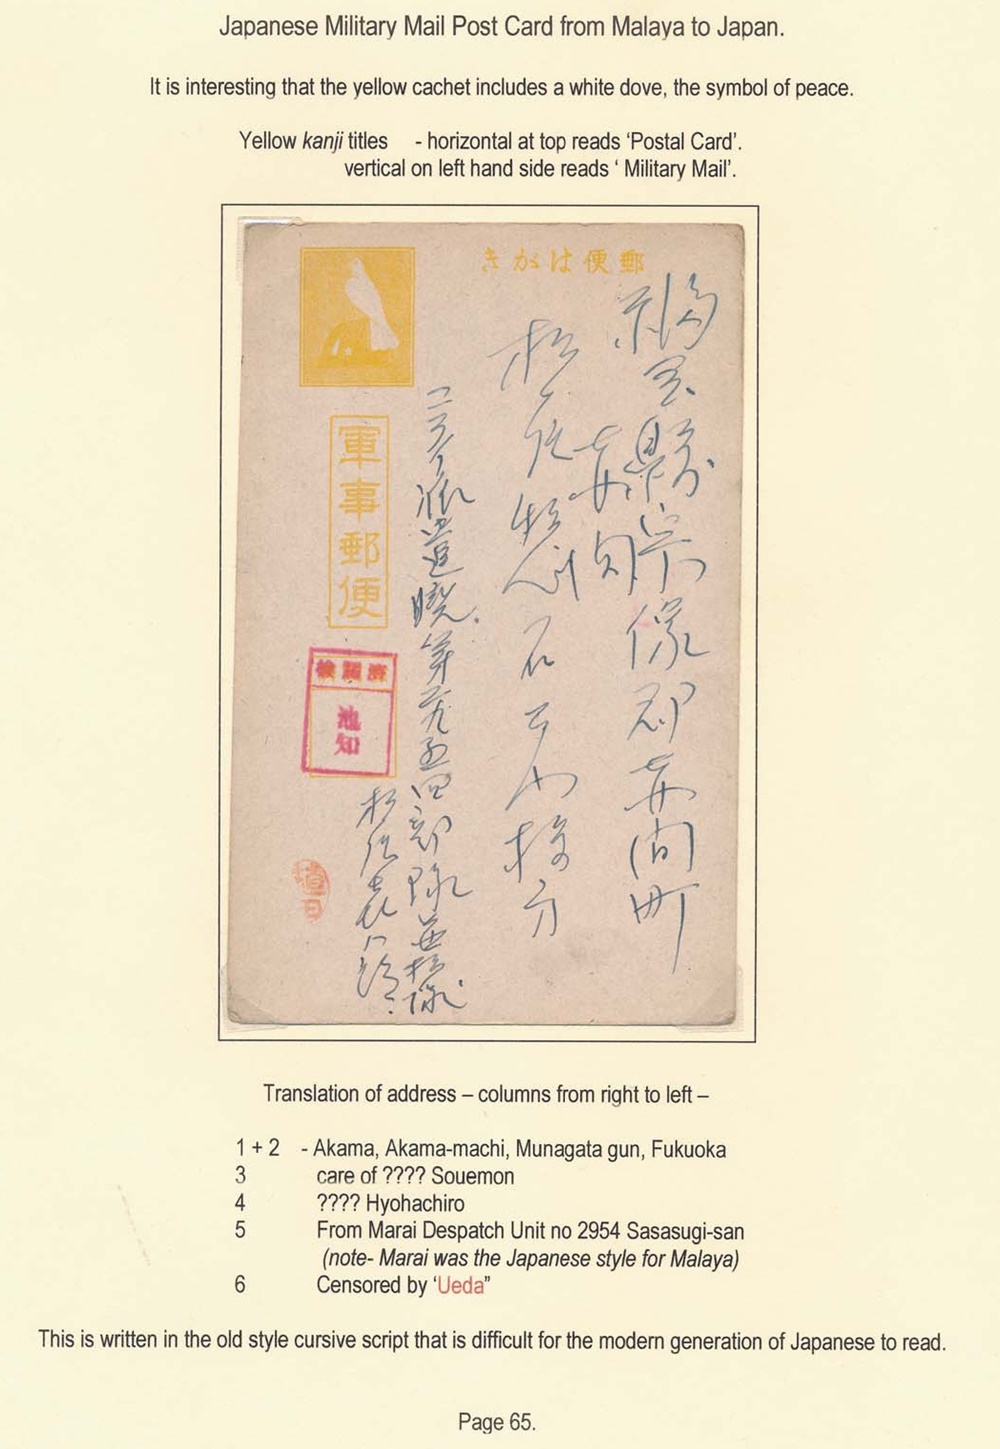 Japanese Military Mail Post Card from Malaya to Japan.
It is interesting that the yellow cachet includes a white dove, the symbol of peace.
Yellow kanji titles - horizontal at top reads ‘Postal Card’.
vertical on left hand side reads ‘ Military Mail’.
きがは便郵
福岡縣宗像郡赤間町
赤間
派遣
第二九五四部隊
軍事郵便
檢閲濟
池知
Translation of address – columns from right to left –
1 + 2 - Akama, Akama-machi, Munagata gun, Fukuoka
3 care of ???? Souemon
4 ???? Hyohachiro
5 From Marai Despatch Unit no 2954 Sasasugi-san
(note- Marai was the Japanese style for Malaya)
6 Censored by ‘Ueda”
This is written in the old style cursive script that is difficult for the modern generation of Japanese to read.
Page 65.